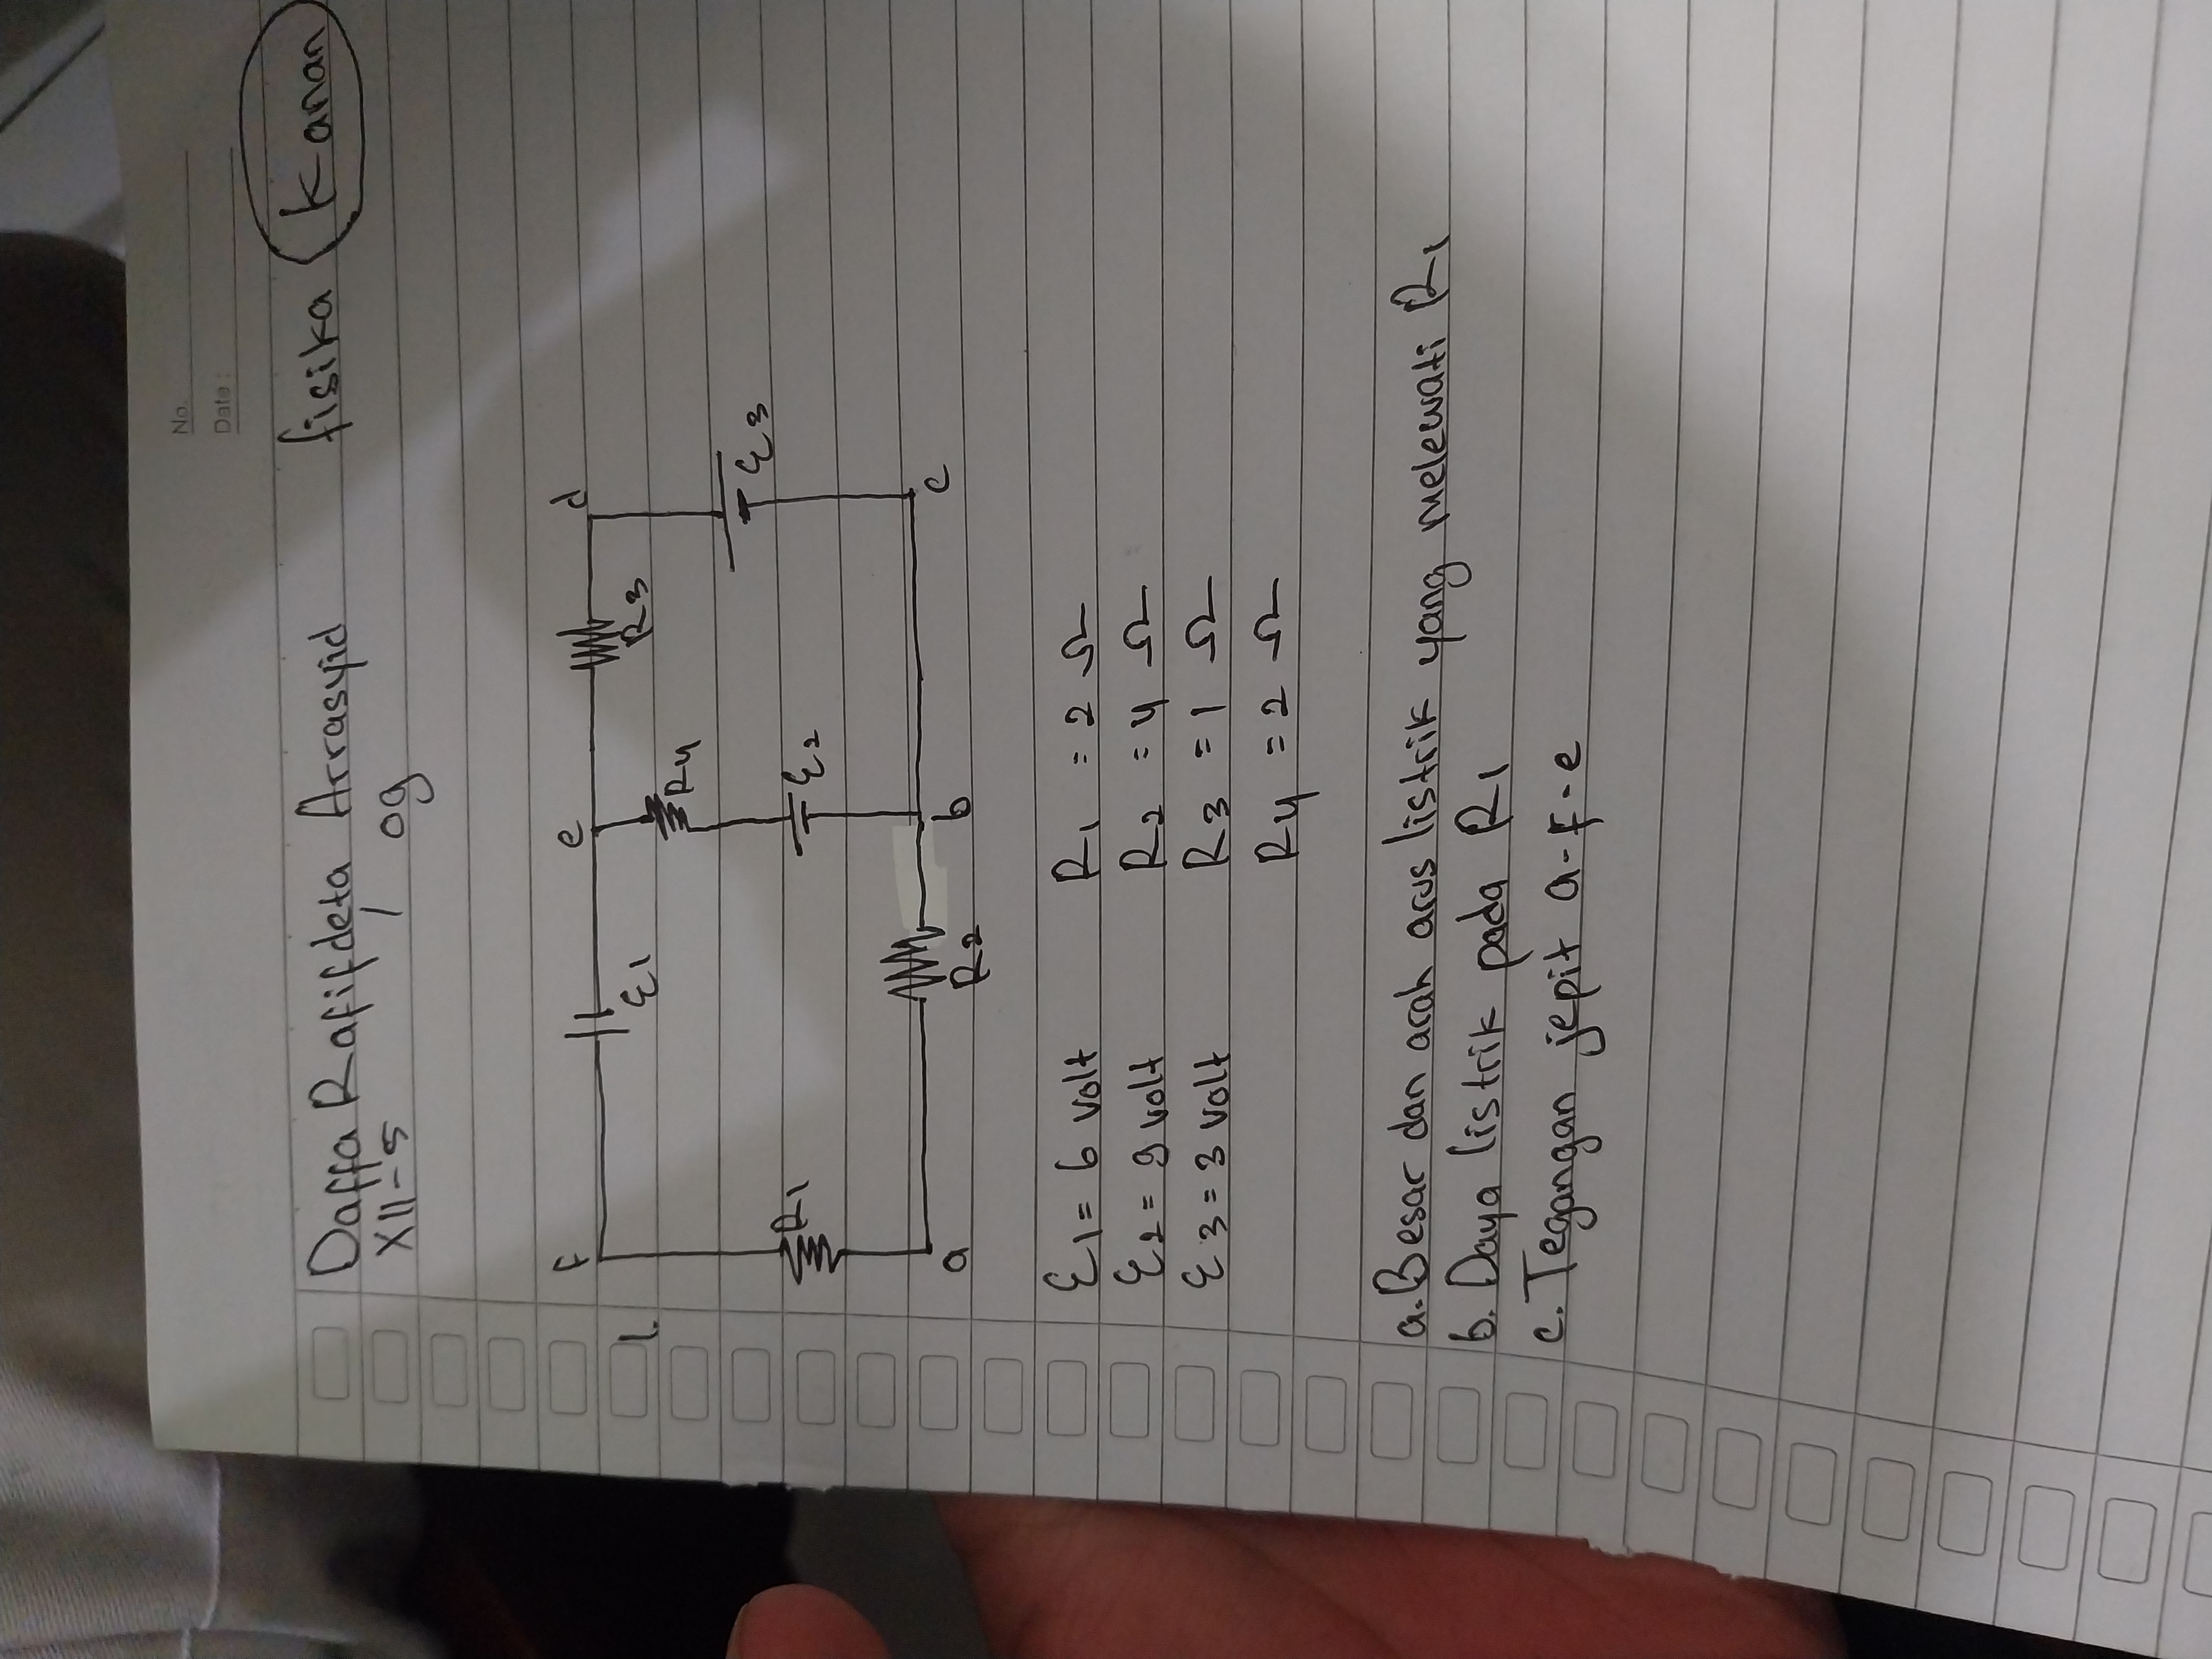 No.
Date :
Daffa Rafifdeta Arrasyid fisika Kanan
XII-5 / 09
f e d
1. ε1 R3
R4
ε3
R1 ε2
a R2 b c
ε1 = 6 volt R1 = 2 Ω
ε2 = 9 volt R2 = 4 Ω
ε3 = 3 volt R3 = 1 Ω
R4 = 2 Ω
a. Besar dan arah arus listrik yang melewati R1
b. Daya listrik pada R1
c. Tegangan jepit a-f-e